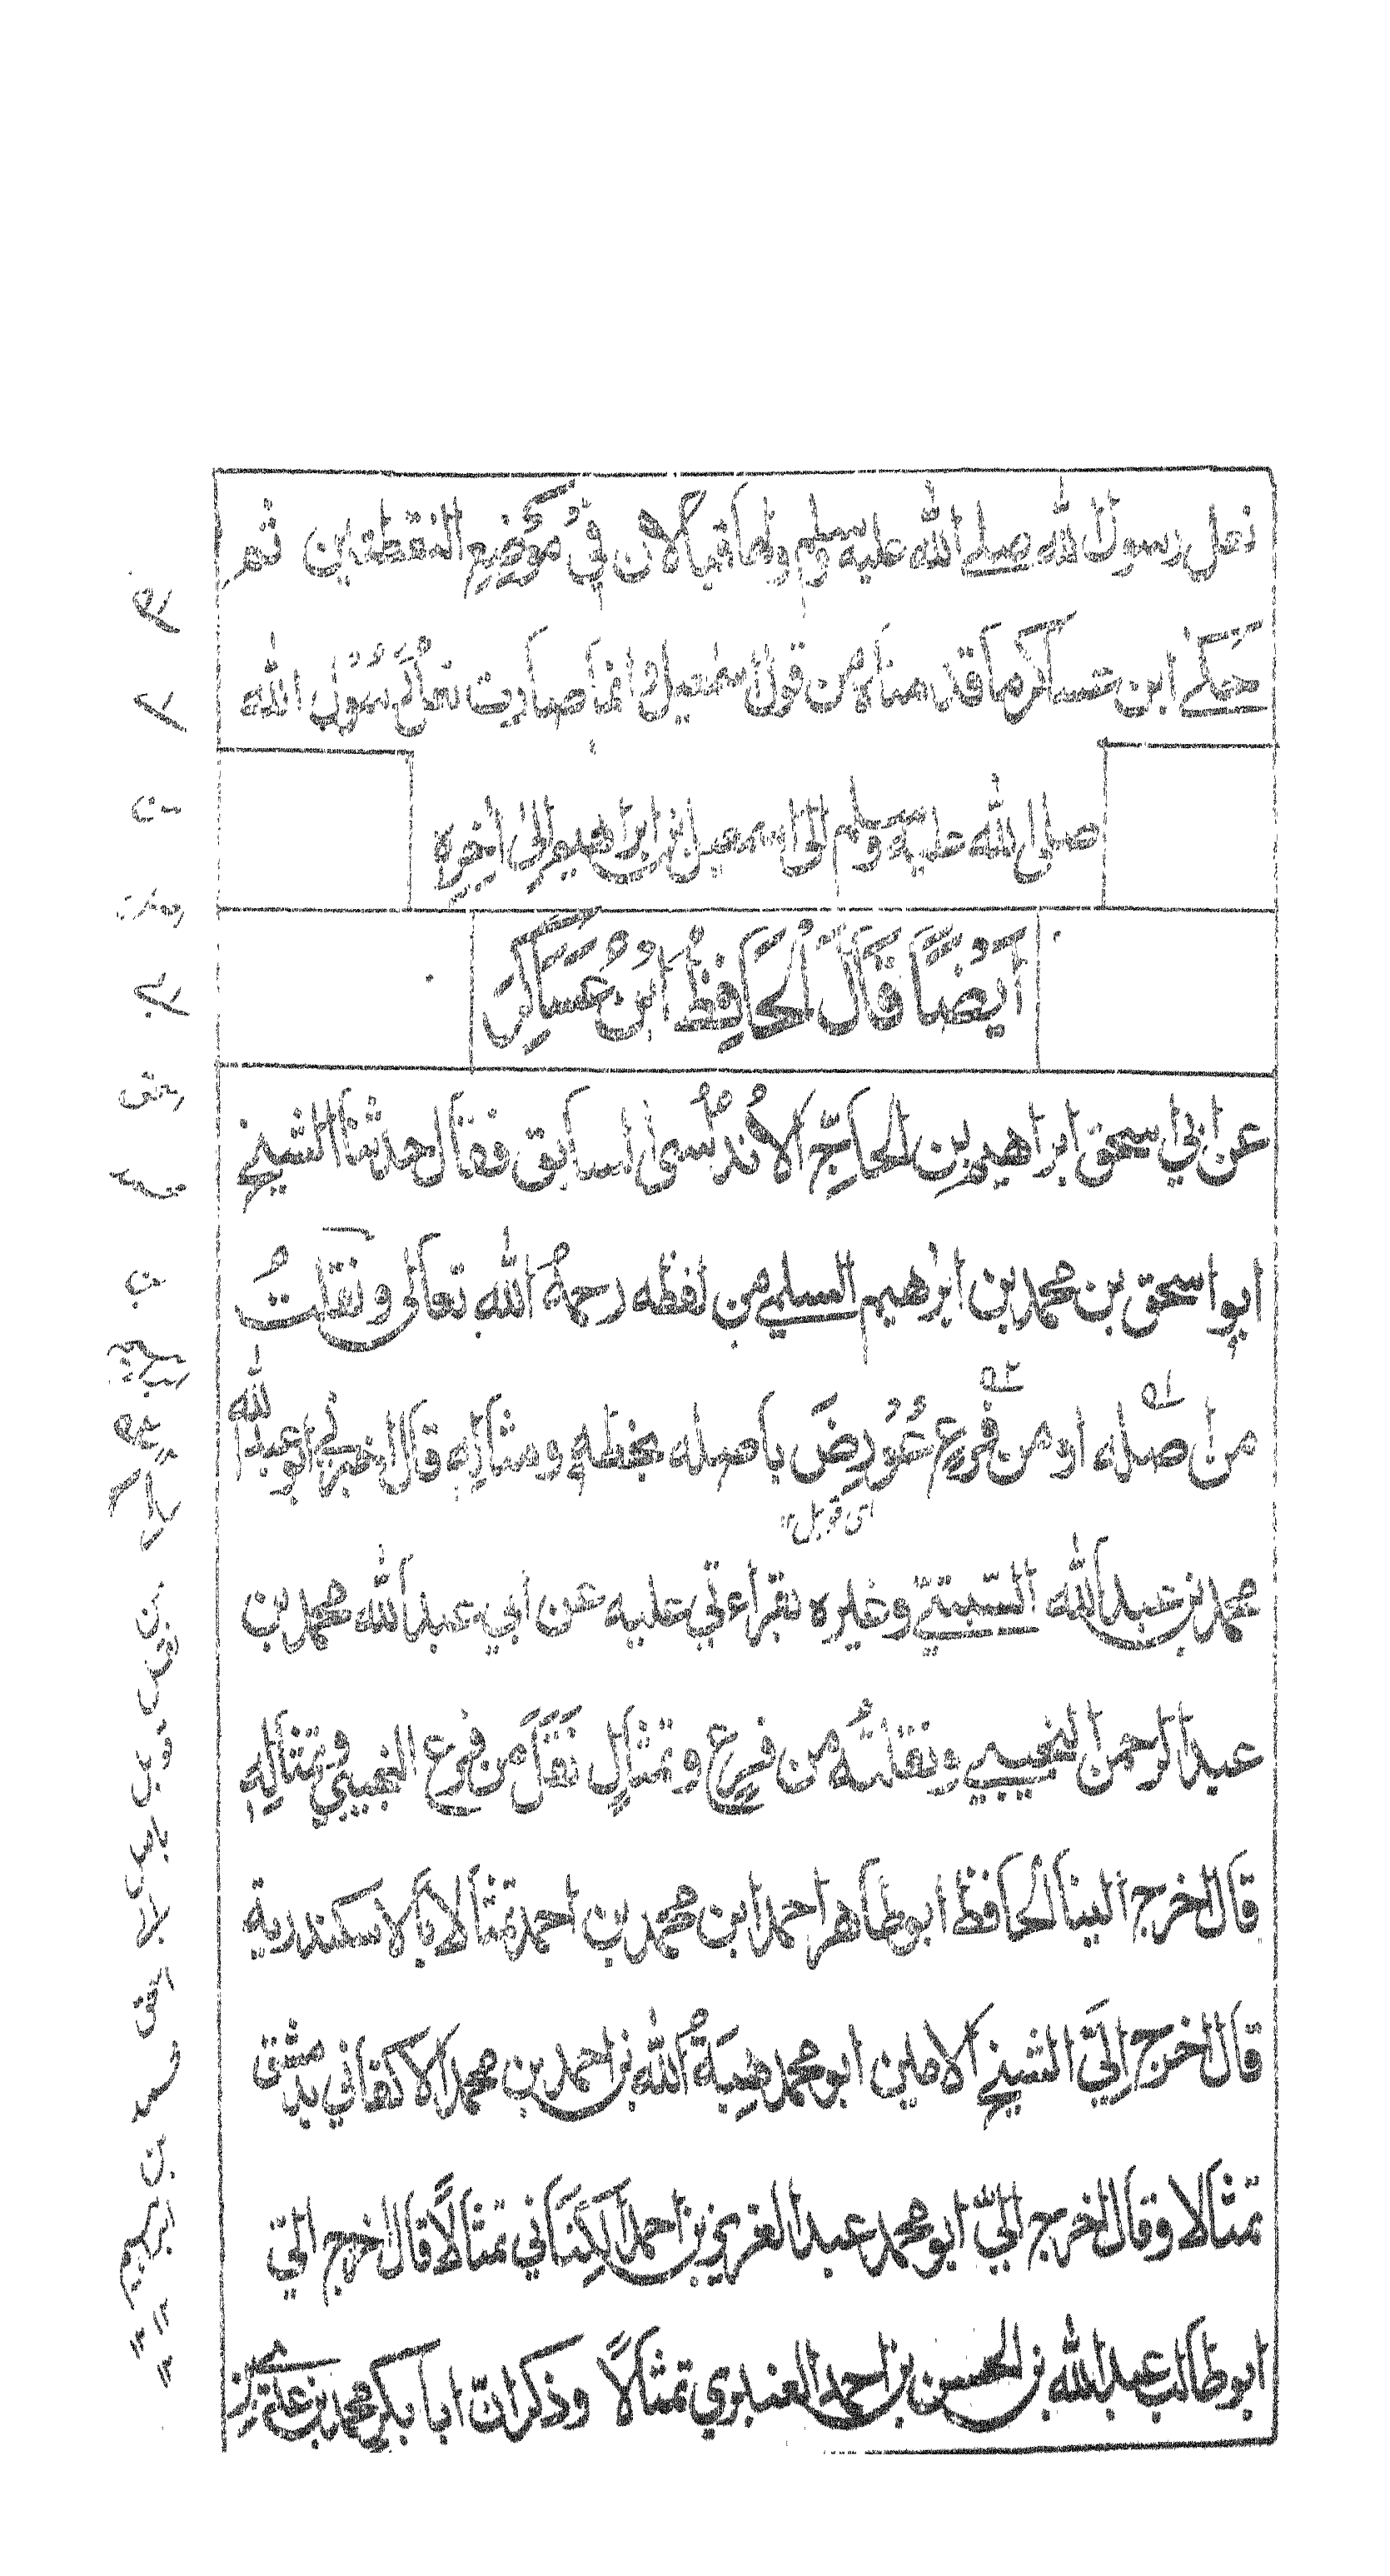 نعل رسول الله صلى الله عليه وسلم ولها قبالان في موضع النقطتين ثم
حكى ابن عساكر ما قدمناه من قول اسمعيل وانما صارت نعل رسول الله
صلى الله عليه وسلم الى اسمعيل بن ابراهيم الى اخره
اَيْضًا قَالَ الْحَافِظُ ابْنُ عَسَاكِرَ
عن ابي اسحق ابراهيم بن الحاجّ الاندلسى السابق فقال حدثنا الشيخ
ابو اسحق بن محمد بن ابراهيم السلمي من لفظه رحمهُ الله تعالى ونقلتُ
من اصله او من فرعٍ عُوْرِضَ باصله بخطه ومثاله قال اخبرني ابو عبد الله
اى قوبل ١٢
محمد بن عبد الله السّبتيّ وغيره بقراءتي عليه عن ابي عبد الله محمد بن
عبد الرحمن التجيبي ونقلتُه من فرعٍ وتمثالٍ نَقَلَ من فرع التجيبي وتمثالِهِ
قال اخرج الينا الحافظ ابو طاهر احمد ابن محمد بن احمد تمثالا بالاسكندرية
قال اخرج اِلَيَّ الشيخ الامين ابو محمد هبةُ الله بن احمد بن محمد الاكفاني بدمشق
تمثالا وقال اخرج اليّ ابو محمد عبد العزيز بن احمد الكِتَاني تمثالًا قال اخرج الي
ابو طالب عبد الله بن الحسن بن احمد العنبري تمثالًا وذكر ان ابا بكر محمد بن عدي بن
بن
قوبل
باصل
ابى
اسحق
محمد
بن
ابراهيم
١٢